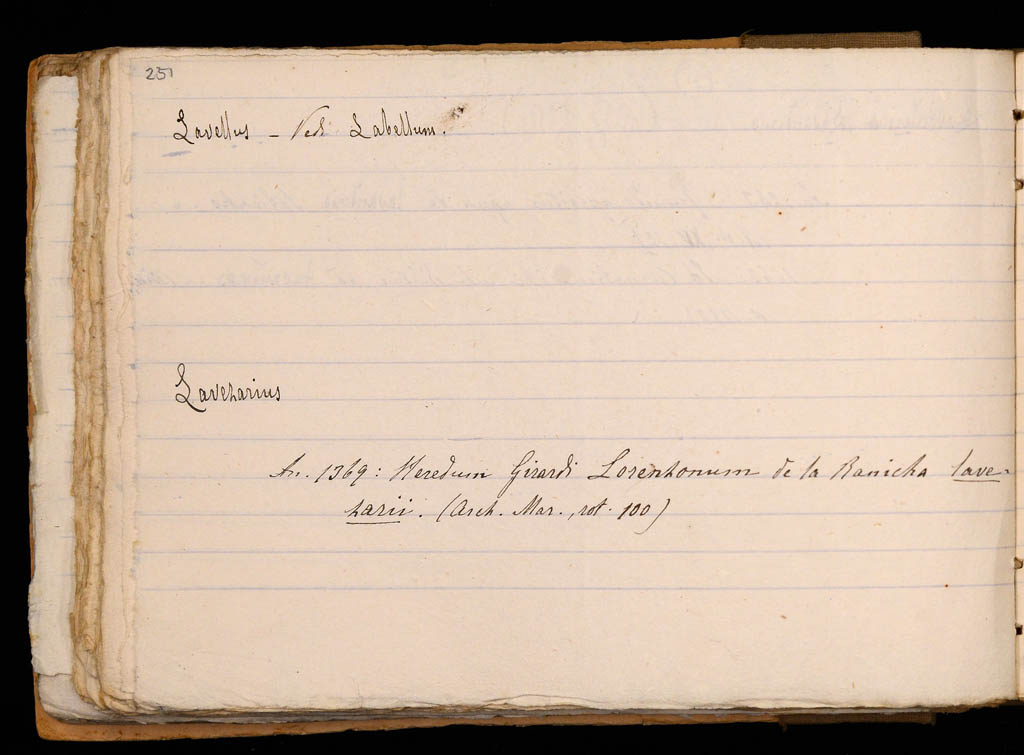 251
Lavellus – Vedi Labellum.
Lavezarius
An. 1369: Heredum Girardi Lorenzonum de la Ranicha lave-
zarii. (Arch. Mar., rot. 100)